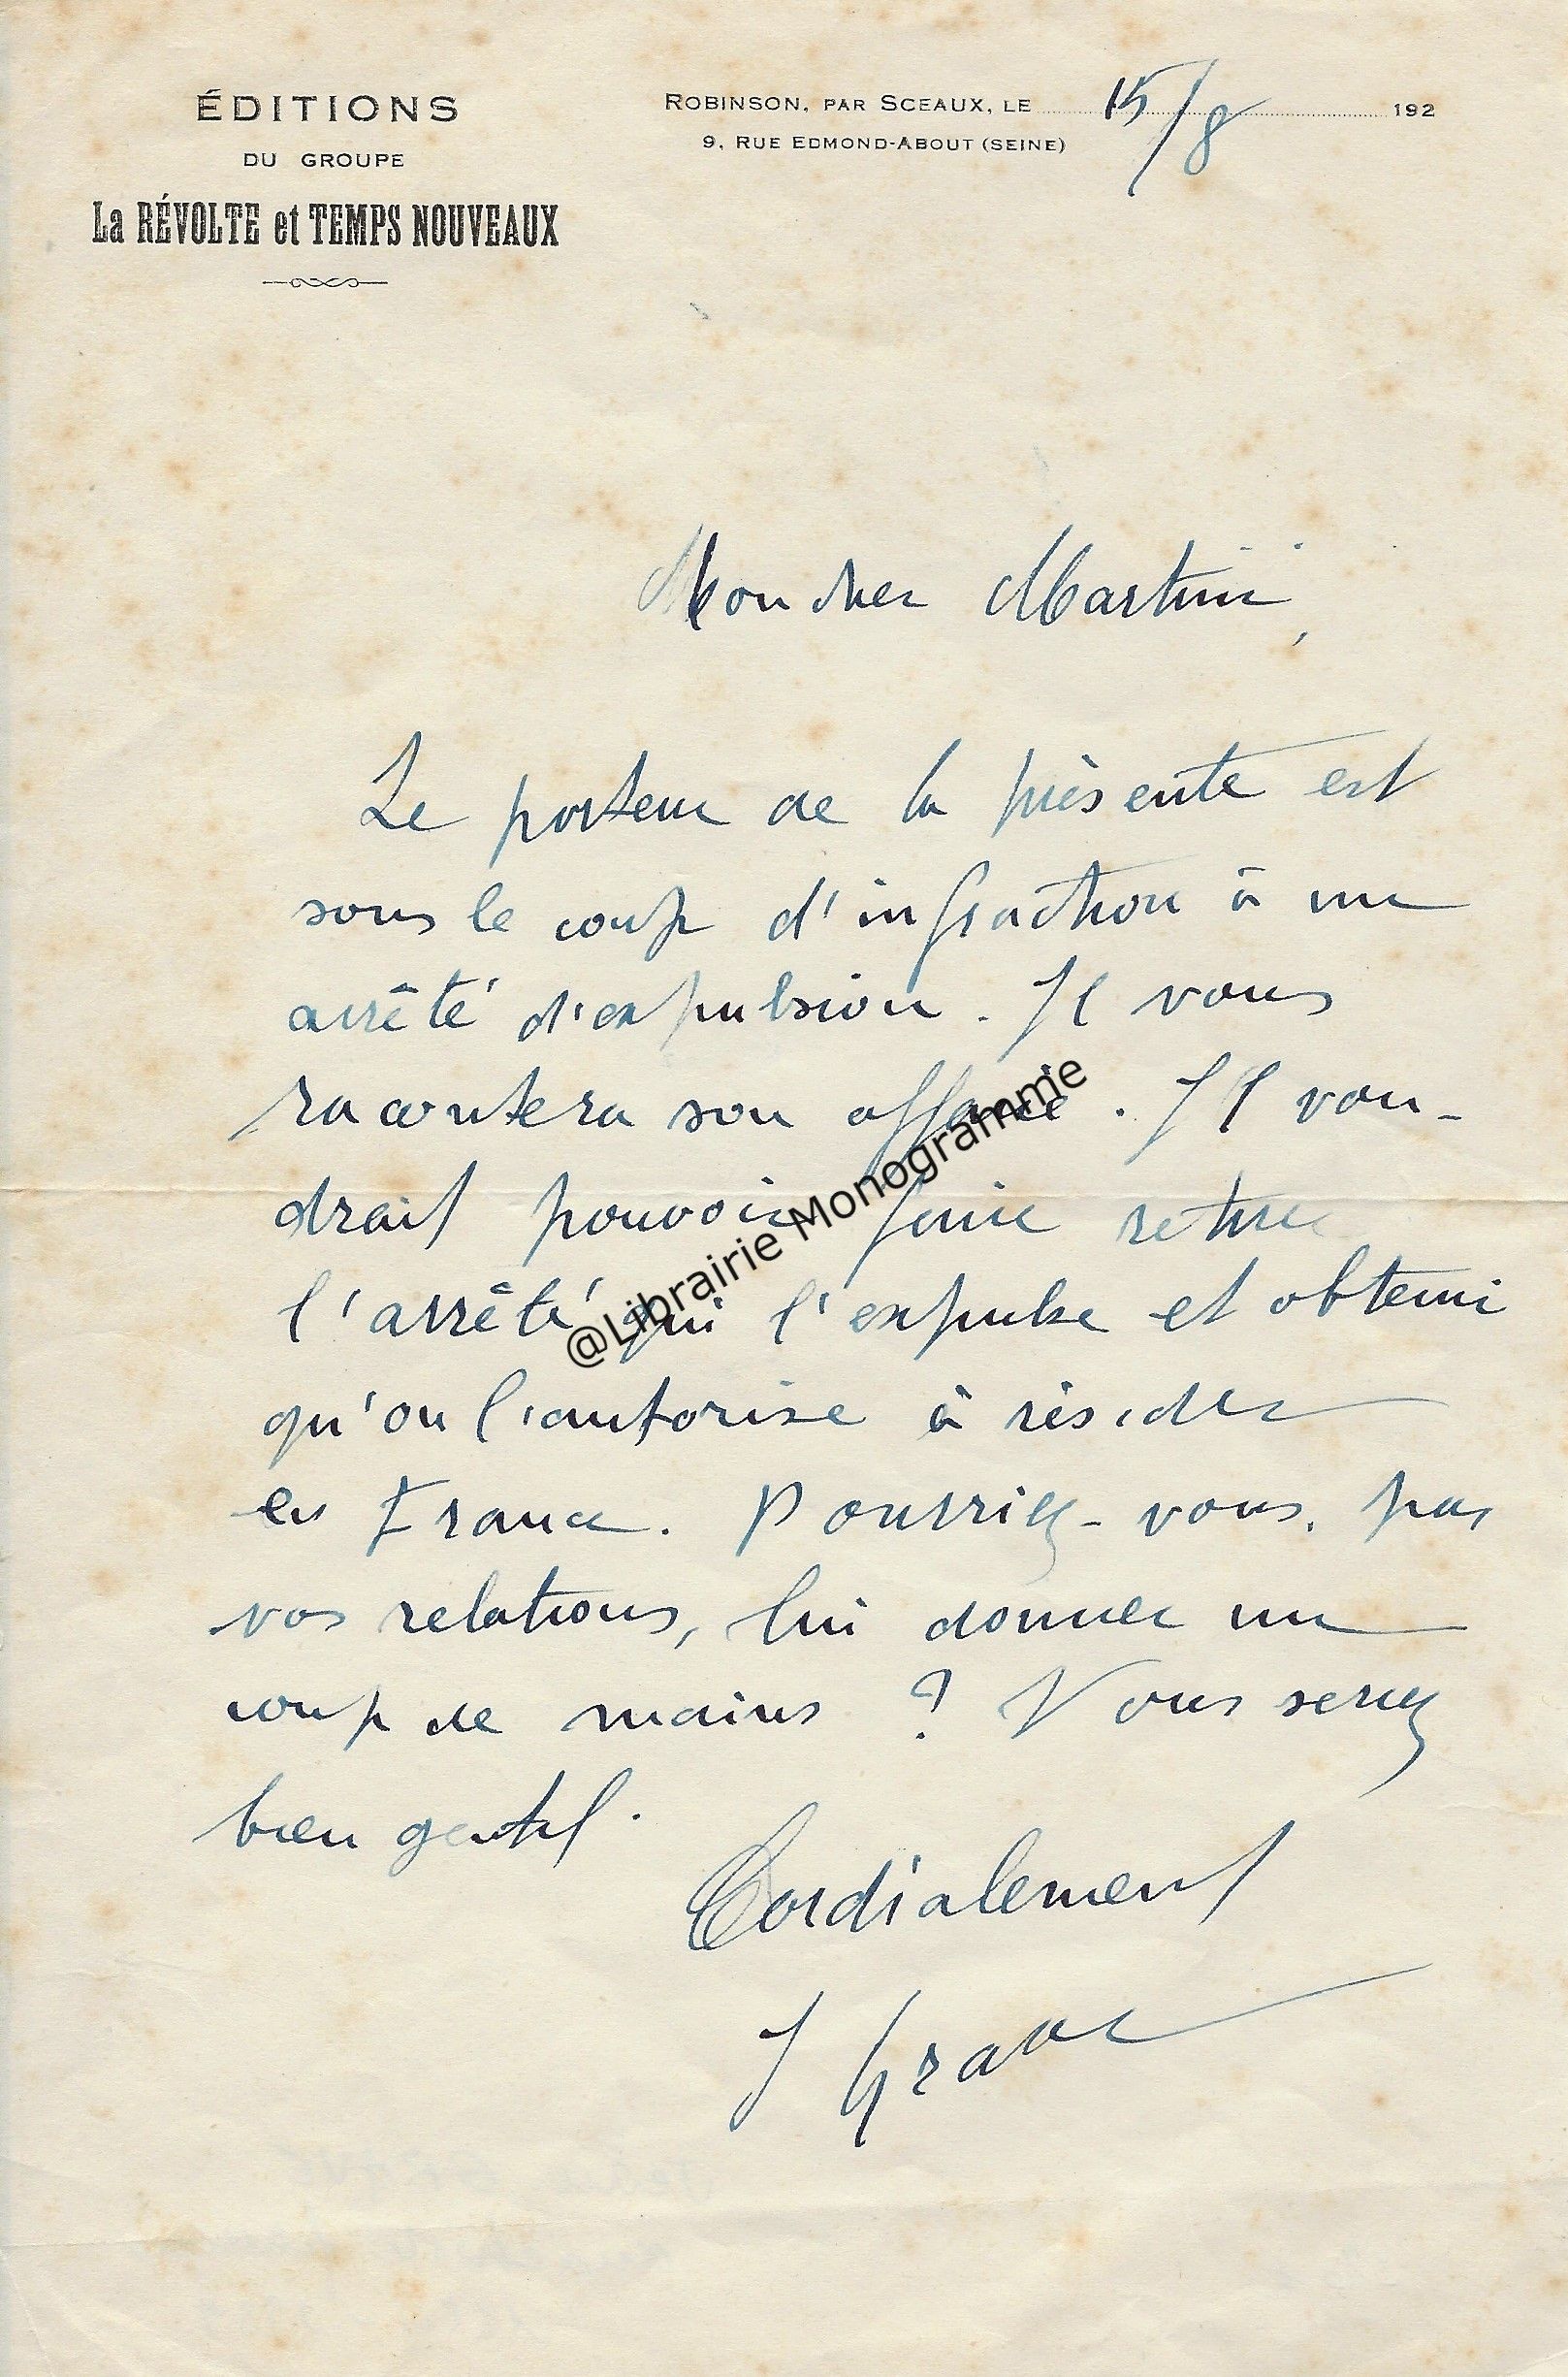 ÉDITIONS
DU GROUPE
La RÉVOLTE et TEMPS NOUVEAUX
ROBINSON, PAR SCEAUX, LE 15/8 192
9, RUE EDMOND-ABOUT (SEINE)
Mon cher Martini,
Le porteur de la présente est
sous le coup d'infraction à un
arrêté d'expulsion. Il vous
racontera son affaire. Il vou-
drait pouvoir faire retirer
l'arrêté qui l'expulse et obtenir
qu'on l'autorise à résider
en France. Pourriez-vous, par
vos relations, lui donner un
coup de mains ? Vous serez
bien gentil.
Cordialement
J Grave
@Librairie Monogramme